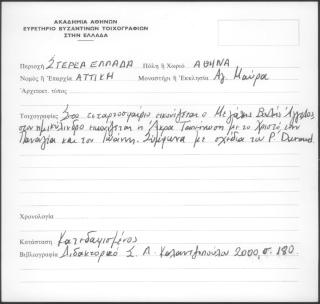 ΑΚΑΔΗΜΙΑ ΑΘΗΝΩΝ
ΕΥΡΕΤΗΡΙΟ ΒΥΖΑΝΤΙΝΩΝ ΤΟΙΧΟΓΡΑΦΙΩΝ
ΣΤΗΝ ΕΛΛΑΔΑ
Περιοχή ΣΤΕΡΕΑ ΕΛΛΑΔΑ Πόλη ή Χωριό ΑΘΗΝΑ
Νομός ή Ἐπαρχία ΑΤΤΙΚΗ Μοναστήρι ή Ἐκκλησία Αγ. Μαύρα
Ἀρχιτεκτ. τύπος
Τοιχογραφίες Στο τεταρτοσφαίριο εικονίζεται ο Μεγάλης Βουλής Άγγελος,
στον ημικύλινδρο εικονίζεται η Άκρα Ταπείνωση με το Χριστό, την
Παναγία και τον Ιωάννη. Σύμφωνα με σχέδια του P. Durand.
Χρονολογία
Κατάσταση Κατεδαφισμένος
Βιβλιογραφία Διδακτορικό Σ. Λ. Καλαντζοπούλου 2000, σ. 180.